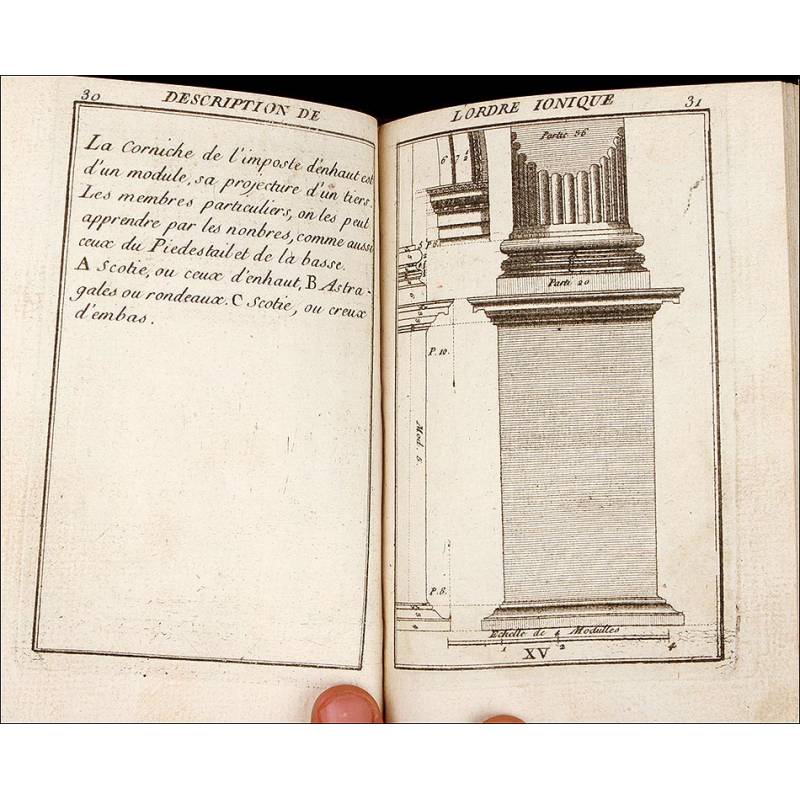 30 DESCRIPTION DE
La Corniche de l'imposte d'enhaut est
d'un module, sa projecture d'un tiers.
Les membres particuliers, on les peut
apprendre par les nonbres, comme aussi
ceux du Piedestail et de la basse.
A Scotie, ou ceux d'enhaut, B Astra-
gales ou rondeaux. C Scotie, ou creux
d'embas.
L'ORDRE IONIQUE 31
Partie 36
6 7 1/2
P 8.
Parti 20
P. 10.
Mod. 5.
P. 8.
Echelle de 4 Modulles
1 2 4
XV